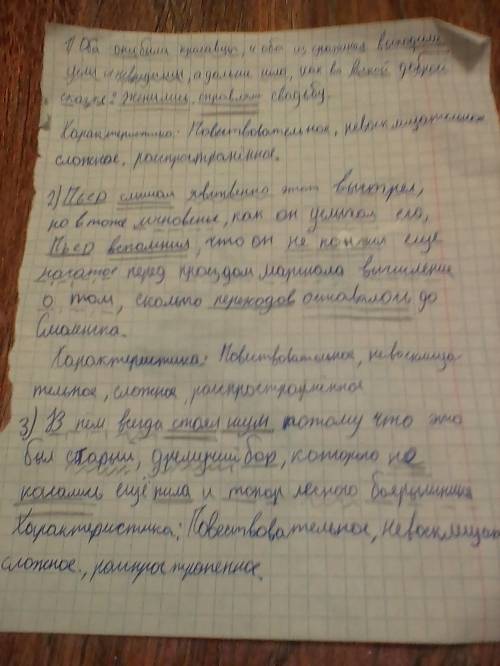 1) Оба красавицу, и оба из сражения выходили
целы и невредимы, а дальше шла, как во всякой доброй
сказке: женились, справляли свадьбу.
Характеристика: Повествовательное, невосклицательное
сложное, распространённое.
2) Пьер слишал явственно этот выстрел,
но в тоже мгновенье, как он услыхал его,
Пьер вспомнил, что он не кончил ещё
начатое перед проездом маршала вычисление
о том, сколько переходов оставалось до
Смоленска.
Характеристика: Повествовательное, невосклица-
тельное, сложное, распространённое
3) В нем всегда стоял шум потому что это
был старый, дремучий бор, которого не
касались ещё пила и топор лесного барышника
Характеристика: Повествовательное, невосклицат
сложное, распространенное.